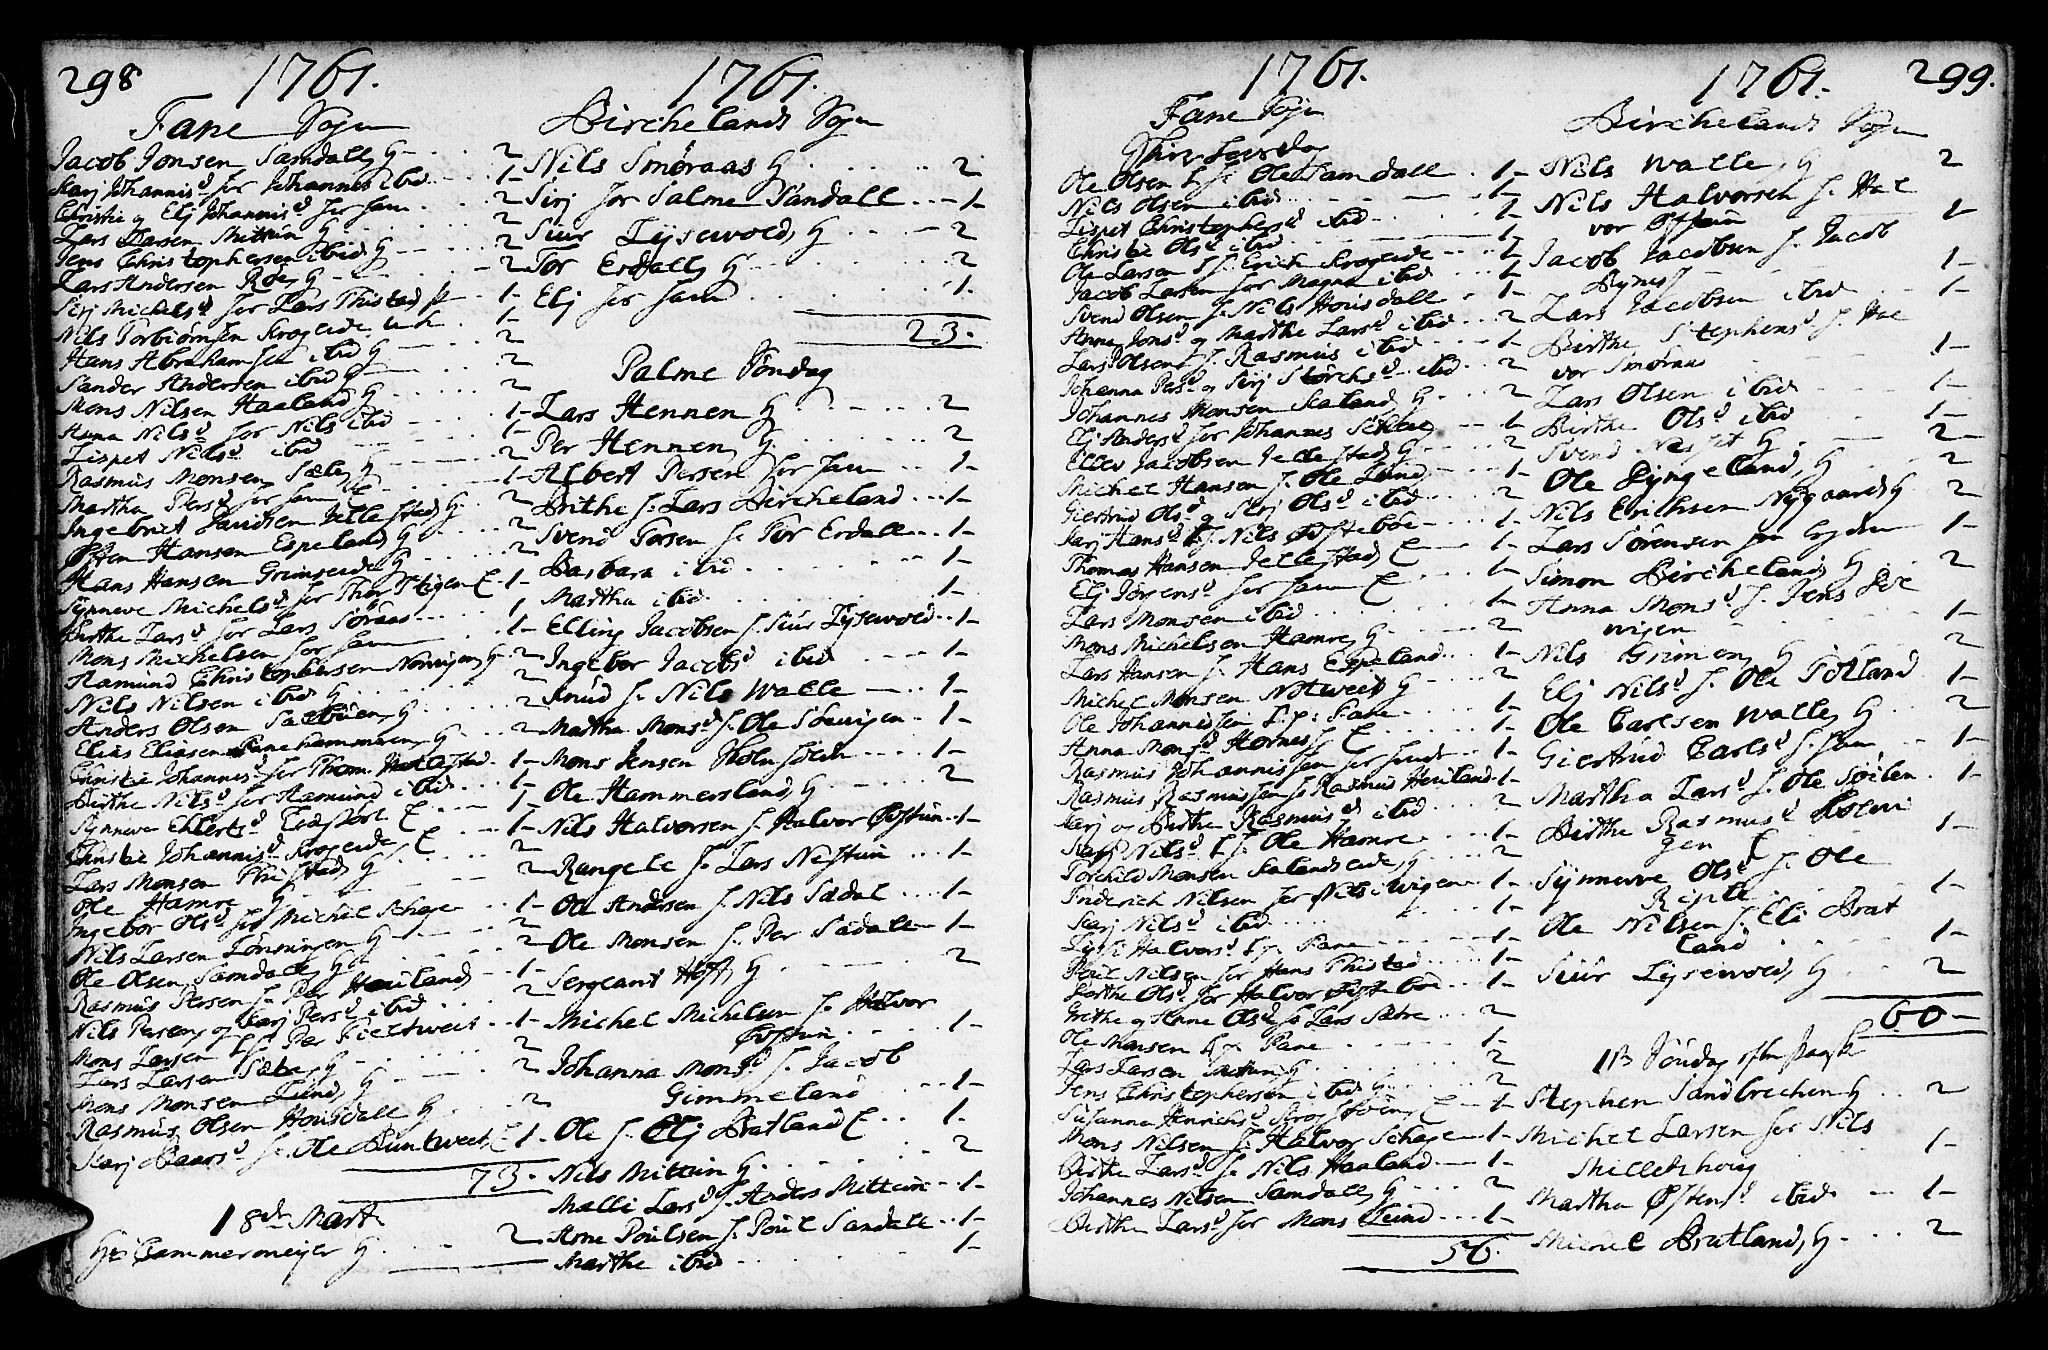 298
1761.
Fane Sogn
Jacob Jonsen Samdall, H - 2
Karj Johannisd for Johannis ibid - 1-
Christie og Elj Johannisd for ham - 2
Lars Larsen Mittun H - 2
Jens Christophersen ibid, H - 2
Lars Andersen Røe, H - 2
Sirj Michelsd for Lars Thistad - 1-
Nils Torbiørnsen Krogeide - 1-
Hans Abrahamsen ibid H - 2
Sander Andersen ibid H - 2
Mons Nilsen Haaland, H - 2
Anna Nilsd for Nils ibid - 1-
Lispet Nilsd ibid - 1-
Rasmus Monsen Sæle, H - 2
Martha Persd for ham - 1-
Ingebrict Davidsen Jellestad, H - 2
Østen Hansen Espeland, H - 2
Hans Hansen Grimseide, H - 2
Synneve Michelsd for Thor Stigen E - 1-
Birthe Larsd for Lars Søråas - 1
Mons Michelsen for ham - 1-
Hamund Christophersen Norwigen, H - 2
Nils Nilsen ibid H - 2
Anders Olsen Sætbuen, H - 2
Elias Eliasen Fanehammeren, H - 2
Christie Johannisd for - 1-
Birthe Nilsd for Hamund ibid - 1-
Synneve Ehlertsd E - 1-
Christie Johannisd Krogeide, E - 1-
Lars Monsen Thistad, H - 2
Ole Hamre H - 2
Ingebor Olsd for Michel Schage - 1-
Nils Larsen Lønningen H - 2
Ole Olsen Samdall, H - 2
Rasmus Persen f. Per Hauland - 1-
Nils Persen og Karj Persd ibid - 2
Mons Larsen Per - 1-
Lars Larsen Sæle, H - 2
Mons Monsen Lund, H - 2
Rasmus Olsen Housdall H - 2
Karj Baarsd f. Ole Buntweet, E 1-
73.
18de Mart.
Hr Cammermeijer H - 2
1761.
Birchelands Sogn
Nils Smøraas H - 2
Sirj for Salme Sandall - 1-
Siur Lysewold, H - 2
Tor Erdall, H - 2
Elj for ham - 1.
23.
Palme Søndag
Lars Hennen H - 2
Per Hennen, H - 2
Albert Persen for ham - 1-
Brithe f. Lars Bircheland - 1-
Svend Torsen f. Tor Erdall - 1-
Barbara ibid - 1-
Martha ibid - 1-
Elling Jacobsen f. Siur Lysewold - 1-
Ingebor Jacobsd ibid - 1-
Knud f. Nils Walle - 1-
Martha Monsd f. Ole - 1-
Mons Jensen - 1-
Ole Hammersland, H - 2
Nils Halvorsen f. Halvor Øvstun - 1-
Rangele f. Lars Nestun - 1-
Ole Andersen f. Nils Sædal - 1-
Ole Monsen f. Per Sædall - 1-
Sergeant Hoft, H - 2
Michel Michelsen f. Halvor
Øvstun - 1-
Johanna Monsd f. Jacob
Gimmeland - 1-
Ole f. Elj Bratland E - 1-
Nils Mittun H - 2
Malli Larsd f. Anders Mittun - 1-
Arne Poulsen f. Poul Sandall - 1-
Marthe ibid - 1-
1761.
Fane Sogn
Skier Torsdag
Ole Olsen f. Ole Samdall - 1-
Nils Olsen ibid - 1-
Lispet Christophersd ibid - 1-
Christie Olsd ibid - 1-
Ole Larsen f. Erich Krogeide - 1-
Jacob Larsen for Magna ibid - 1-
Svend Olsen f. Nils Housdall - 1-
Anna Jonsd og Marthe Larsd ibid - 2
Lars Olsen f. Rasmus ibid - 1-
Johanna Persd og Sirj ibid - 2
Johannes Monsen Kaland H - 2
Elj Andersd for Johannes - 1-
Elles Jacobsen Jellestad, H - 2
Michel Hansen f. Ole Lund - 1-
Giertrud Olsd og Karj Olsd ibid - 2
Karj Hansd f. Nils Østebøe - 1-
Thomas Hansen Jellestad, E - 1-
Elj Jørensd for ham E - 1-
Lars Monsen ibid - 1-
Mons Michelsen Hamre, H - 2
Lars Hansen f. Hans Espeland - 1-
Michel Monsen Notweet H - 2
Ole Johannesen Fane - 1-
Anna Monsd Hornes E - 1-
Rasmus Johannissen - 1-
Rasmus Rasmussen f. Rasmus Hauland - 1-
Karj og Birthe Rasmusd ibid - 2
Karj Nilsd f. Ole Hamre - 1-
Torchild Monsen Kalandseide, H - 2
Friderich Nilsen for Nils iwigen - 1-
Karj Nilsd ibid - 1-
Halvorsd Fane - 1-
Poul Nilsen for Hans Thistad - 1-
Birthe Olsd for Halvor Østebøe - 1-
Grethe og Anne Olsd f. Lars Sætre - 2
Ole Monsen Fane - 1-
Lars Larsen Mittun, H - 2
Jens Christophersen ibid H - 2
Susanna Henrichsd E - 1-
Mons Nilsen f. Halvor Schage - 1-
Birthe Larsd f. Nils Haaland - 1-
Johannes Nilsen Samdall, H - 2
Birthe Larsd for Mons Lund - 1-
56.
1761.
299.
Birchelands Sogn
Nils Walle, H 2
Nils Halvorsen f. Hal
vor Øfstun 1-
Jacob Jacobsen f. Jacob
Bynes 1-
Lars Jacobsen ibid - 1-
Birthe Stephensd f. Hal
vor Smøraas 1-
Lars Olsen ibid - 1-
Birthe Olsd ibid - 1-
Svend Nesset H - 2-
Ole Dyngeland, H 2
Nils Erichsen Nygaard, H 2
Lars Sørensen 1-
Simon Bircheland, H - 2
Anna Monsd f. Jens
wigen - 1-
Nils Grimen, H 2
Elj Nilsd f. Ole Totland 1-
Ole Carlsen Walle, H - 2
Giertrud Carlsd f. ham - 1-
Martha Larsd f. Ole - 1-
Birthe Rasmusd
gen E 1-
Synneve Olsd f. Ole
Riple - 1-
Ole Nilsen f. Eli Brat
land - 1-
Siur Lysewold, H - 2
60-
1ste Søndag efter Paaske
Stephen Sandbrechen H - 2
Michel Larsen for Nils
1-
Martha Østensd ibid - 1-
Michel Bratland, H - 2